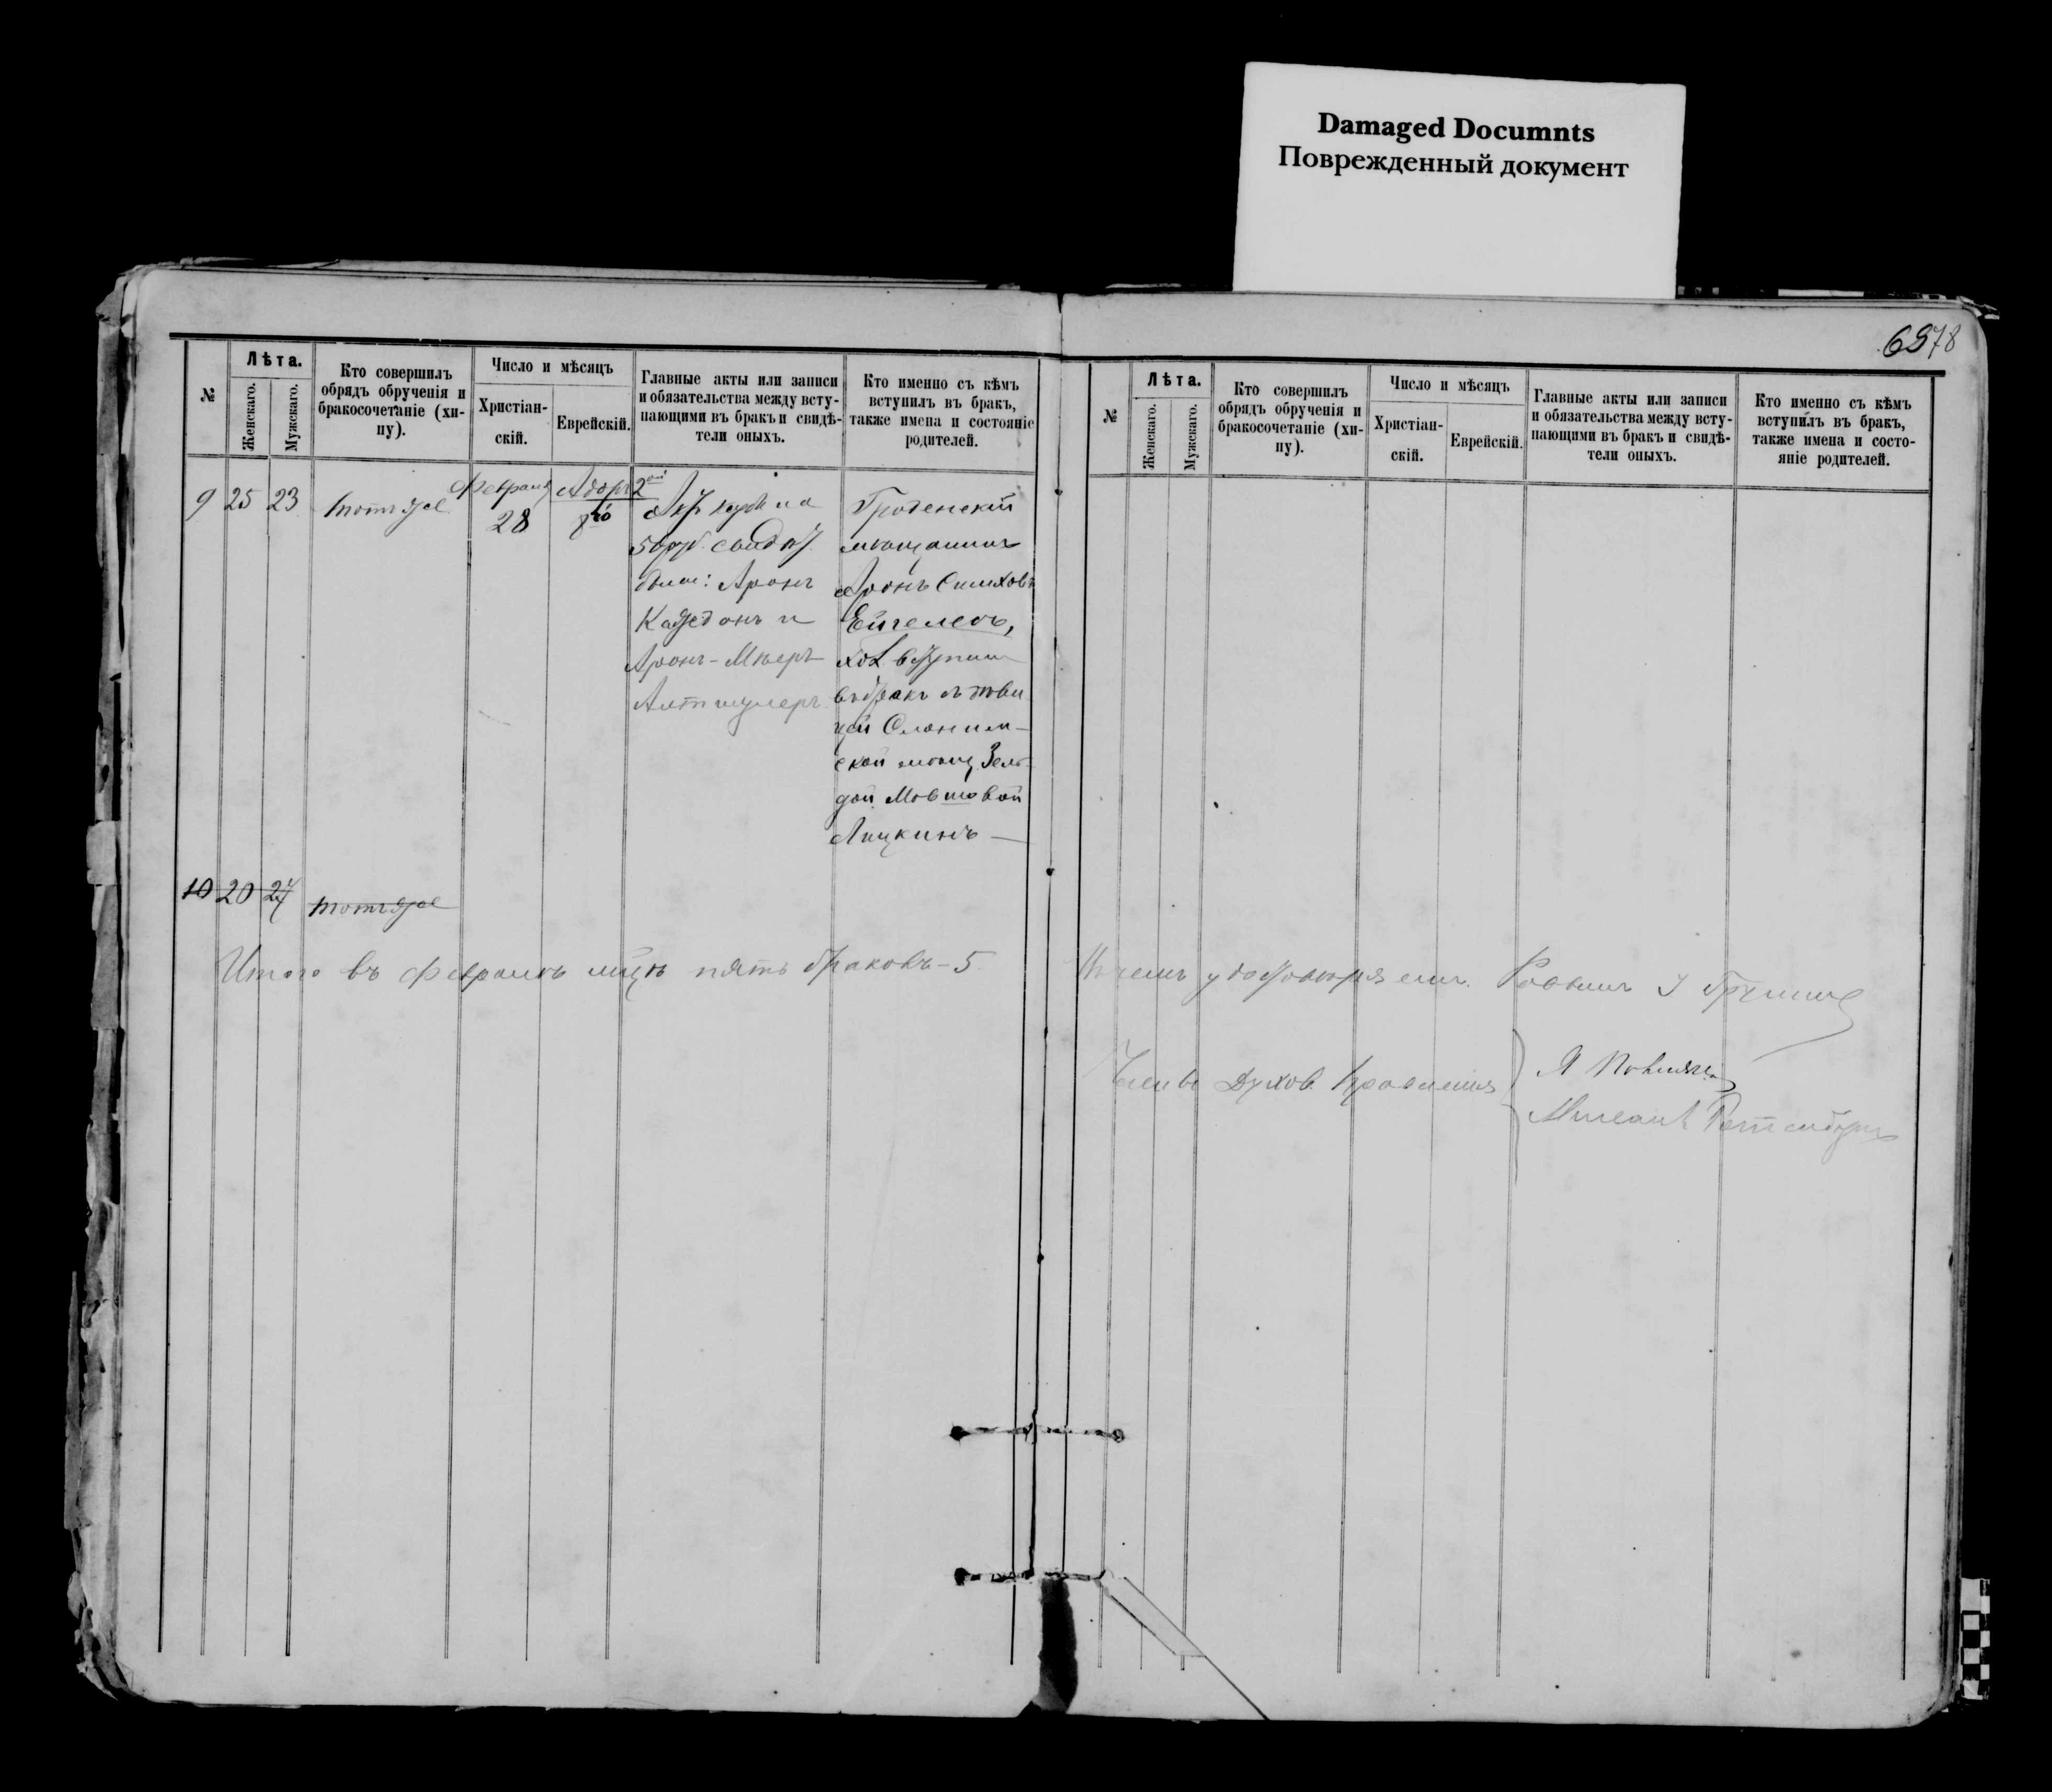 Damaged Documnts
Поврежденный документ
6978
№
Лѣта.
Женскаго.
Мужскаго.
Кто совершилъ
обрядъ обрученія и
бракосочетаніе (хи-
пу).
Число и мѣсяцъ
Христіан-
скій.
Еврейскій.
Главные акты или записи
и обязательства между всту-
пающими въ бракъ и свидѣ-
тели оныхъ.
Кто именно съ кѣмъ
вступилъ въ бракъ,
также имена и состояніе
родителей.
9 25 23 тотъ же
Февраля 28
Адоръ 2ой 8го
на
50 руб. свидѣт.
были: Аронъ
и
Аронъ-Мееръ
Альтшулеръ.
Гроденскій
мѣщанинъ
Аронъ
хол. вступилъ
въ бракъ съ дѣви
цей Слоним-
ской мѣщ. Зель-
дой Мовшовой
Ляцкинъ —
10 20 24 тотъ же
Итого въ Февралѣ мцѣ пять браковъ - 5
№
Лѣта.
Женскаго.
Мужскаго.
Кто совершилъ
обрядъ обрученія и
бракосочетаніе (хи-
пу).
Число и мѣсяцъ
Христіан-
скій.
Еврейскій.
Главные акты или записи
и обязательства между всту-
пающими въ бракъ и свидѣ-
тели оныхъ.
Кто именно съ кѣмъ
вступилъ въ бракъ,
также имена и состо-
яніе родителей.
въ чемъ удостовѣряемъ. Раввинъ
Члены Духов. Правленія